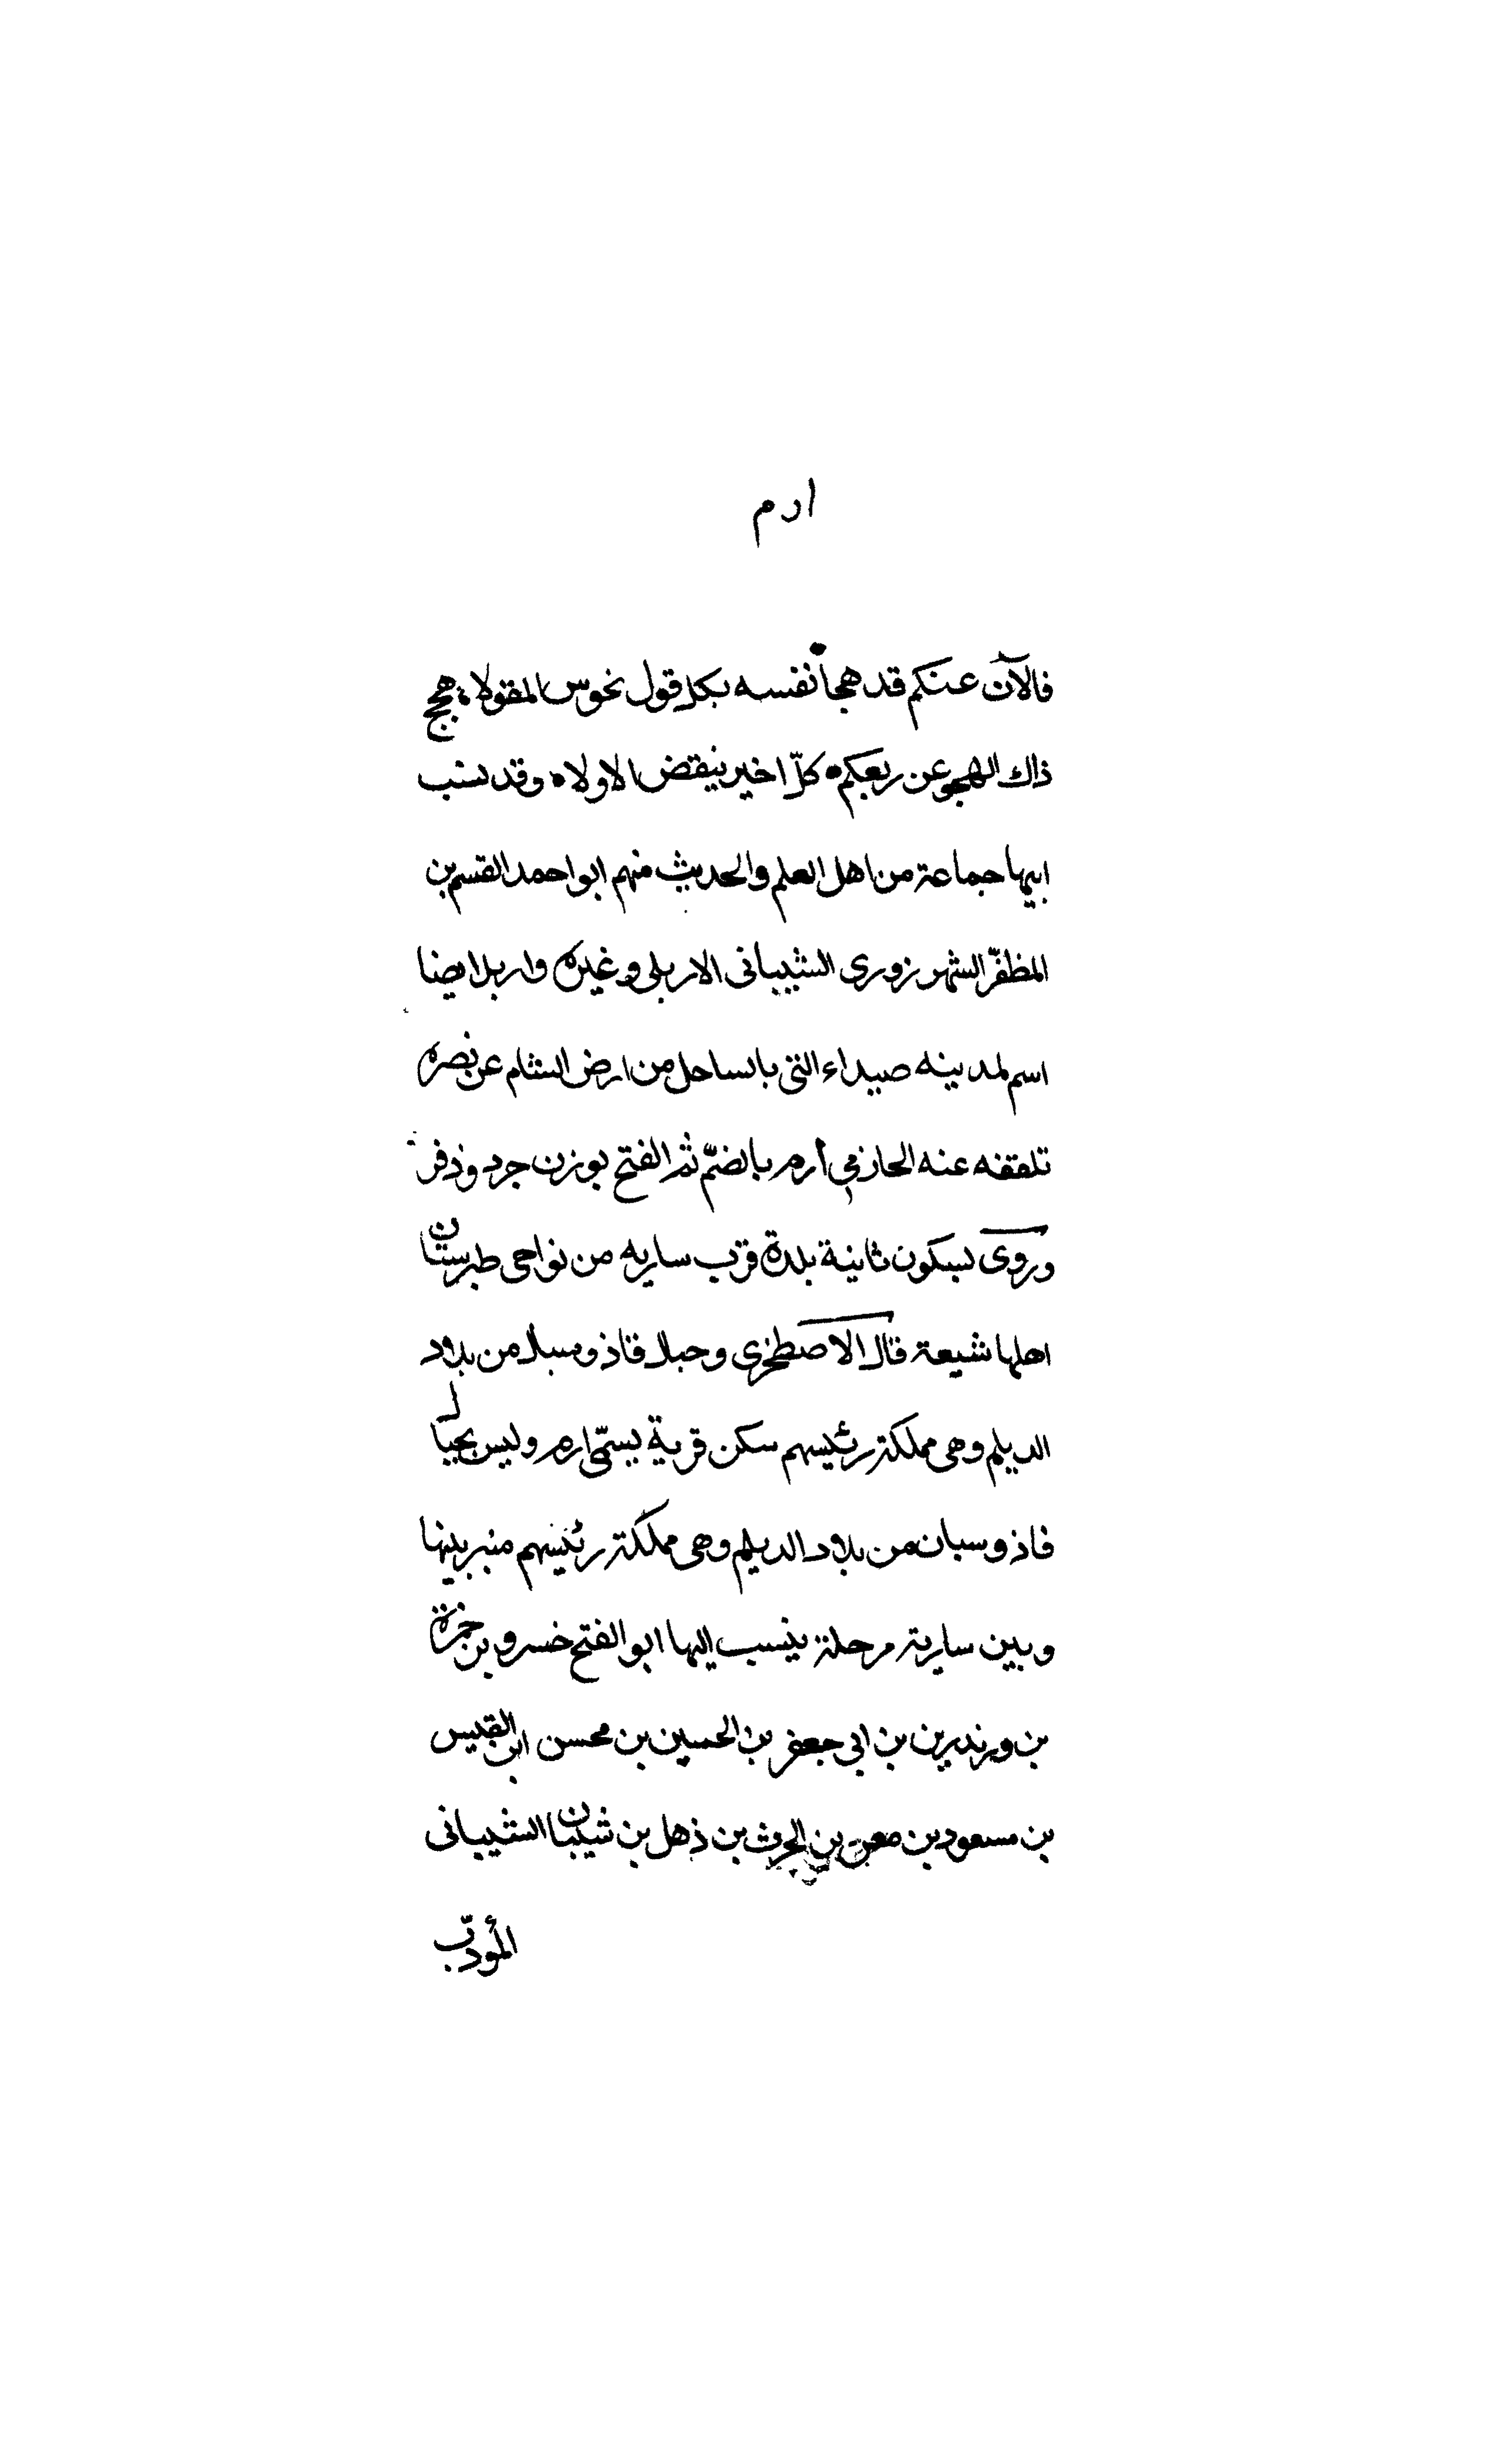 ارم
فالآن عنكم قد هجا نفسه بكل قول نحوس المقولاه هجج
ذاك الهجو عن ربعكم كلّ اخير ينقض الاولاه وقد نسب
اليها جماعة من اهل العلم والحديث منهم ابو احمد القسم بن
المظفّر الشهرزورى الشيبانى الاربلى وغيره واربل ايضا
اسم لمدينه صيداء التى بالساحل من ارض الشام عن نصره
تلقفه عنه الحازمي أرم بالضمّ ثم الفتح بوزن جرد وزفر
وروى بسكون ثانية بلدة قرب ساريه من نواحى طبرستان
اهلها شيعة قال الاصطخرى وجبال قاذوسبان من بلاد
الديلم وهى مملكة رئيسهم سكن قرية يسمّى ارم وليس بجبال
قاذوسبان من بلاد الديلم وهى مملكة رئيسهم منبر بينها
وبين سارية مرحلة ينسب اليها ابو الفتح خسرو بن حمزة
بن وندرين بن ابى جعفر بن الحسين بن محسن ابن القيس
بن مسعود بن معن بن الحرث بن ذهل بن شيبان الشيبانى
المؤدّب